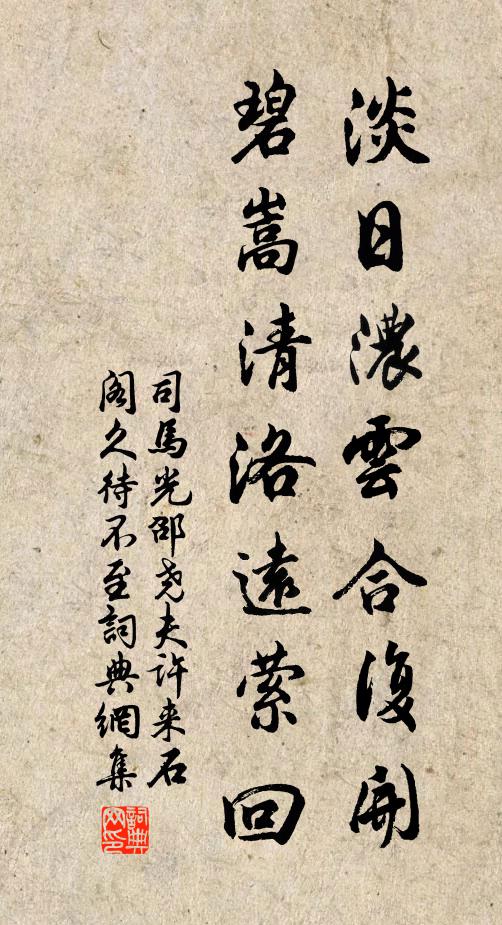 淡日濃雲合復開
碧嵩清洛遠縈回
司馬光邵尧夫許来石
阁久待不至詞典網集
詞典网印